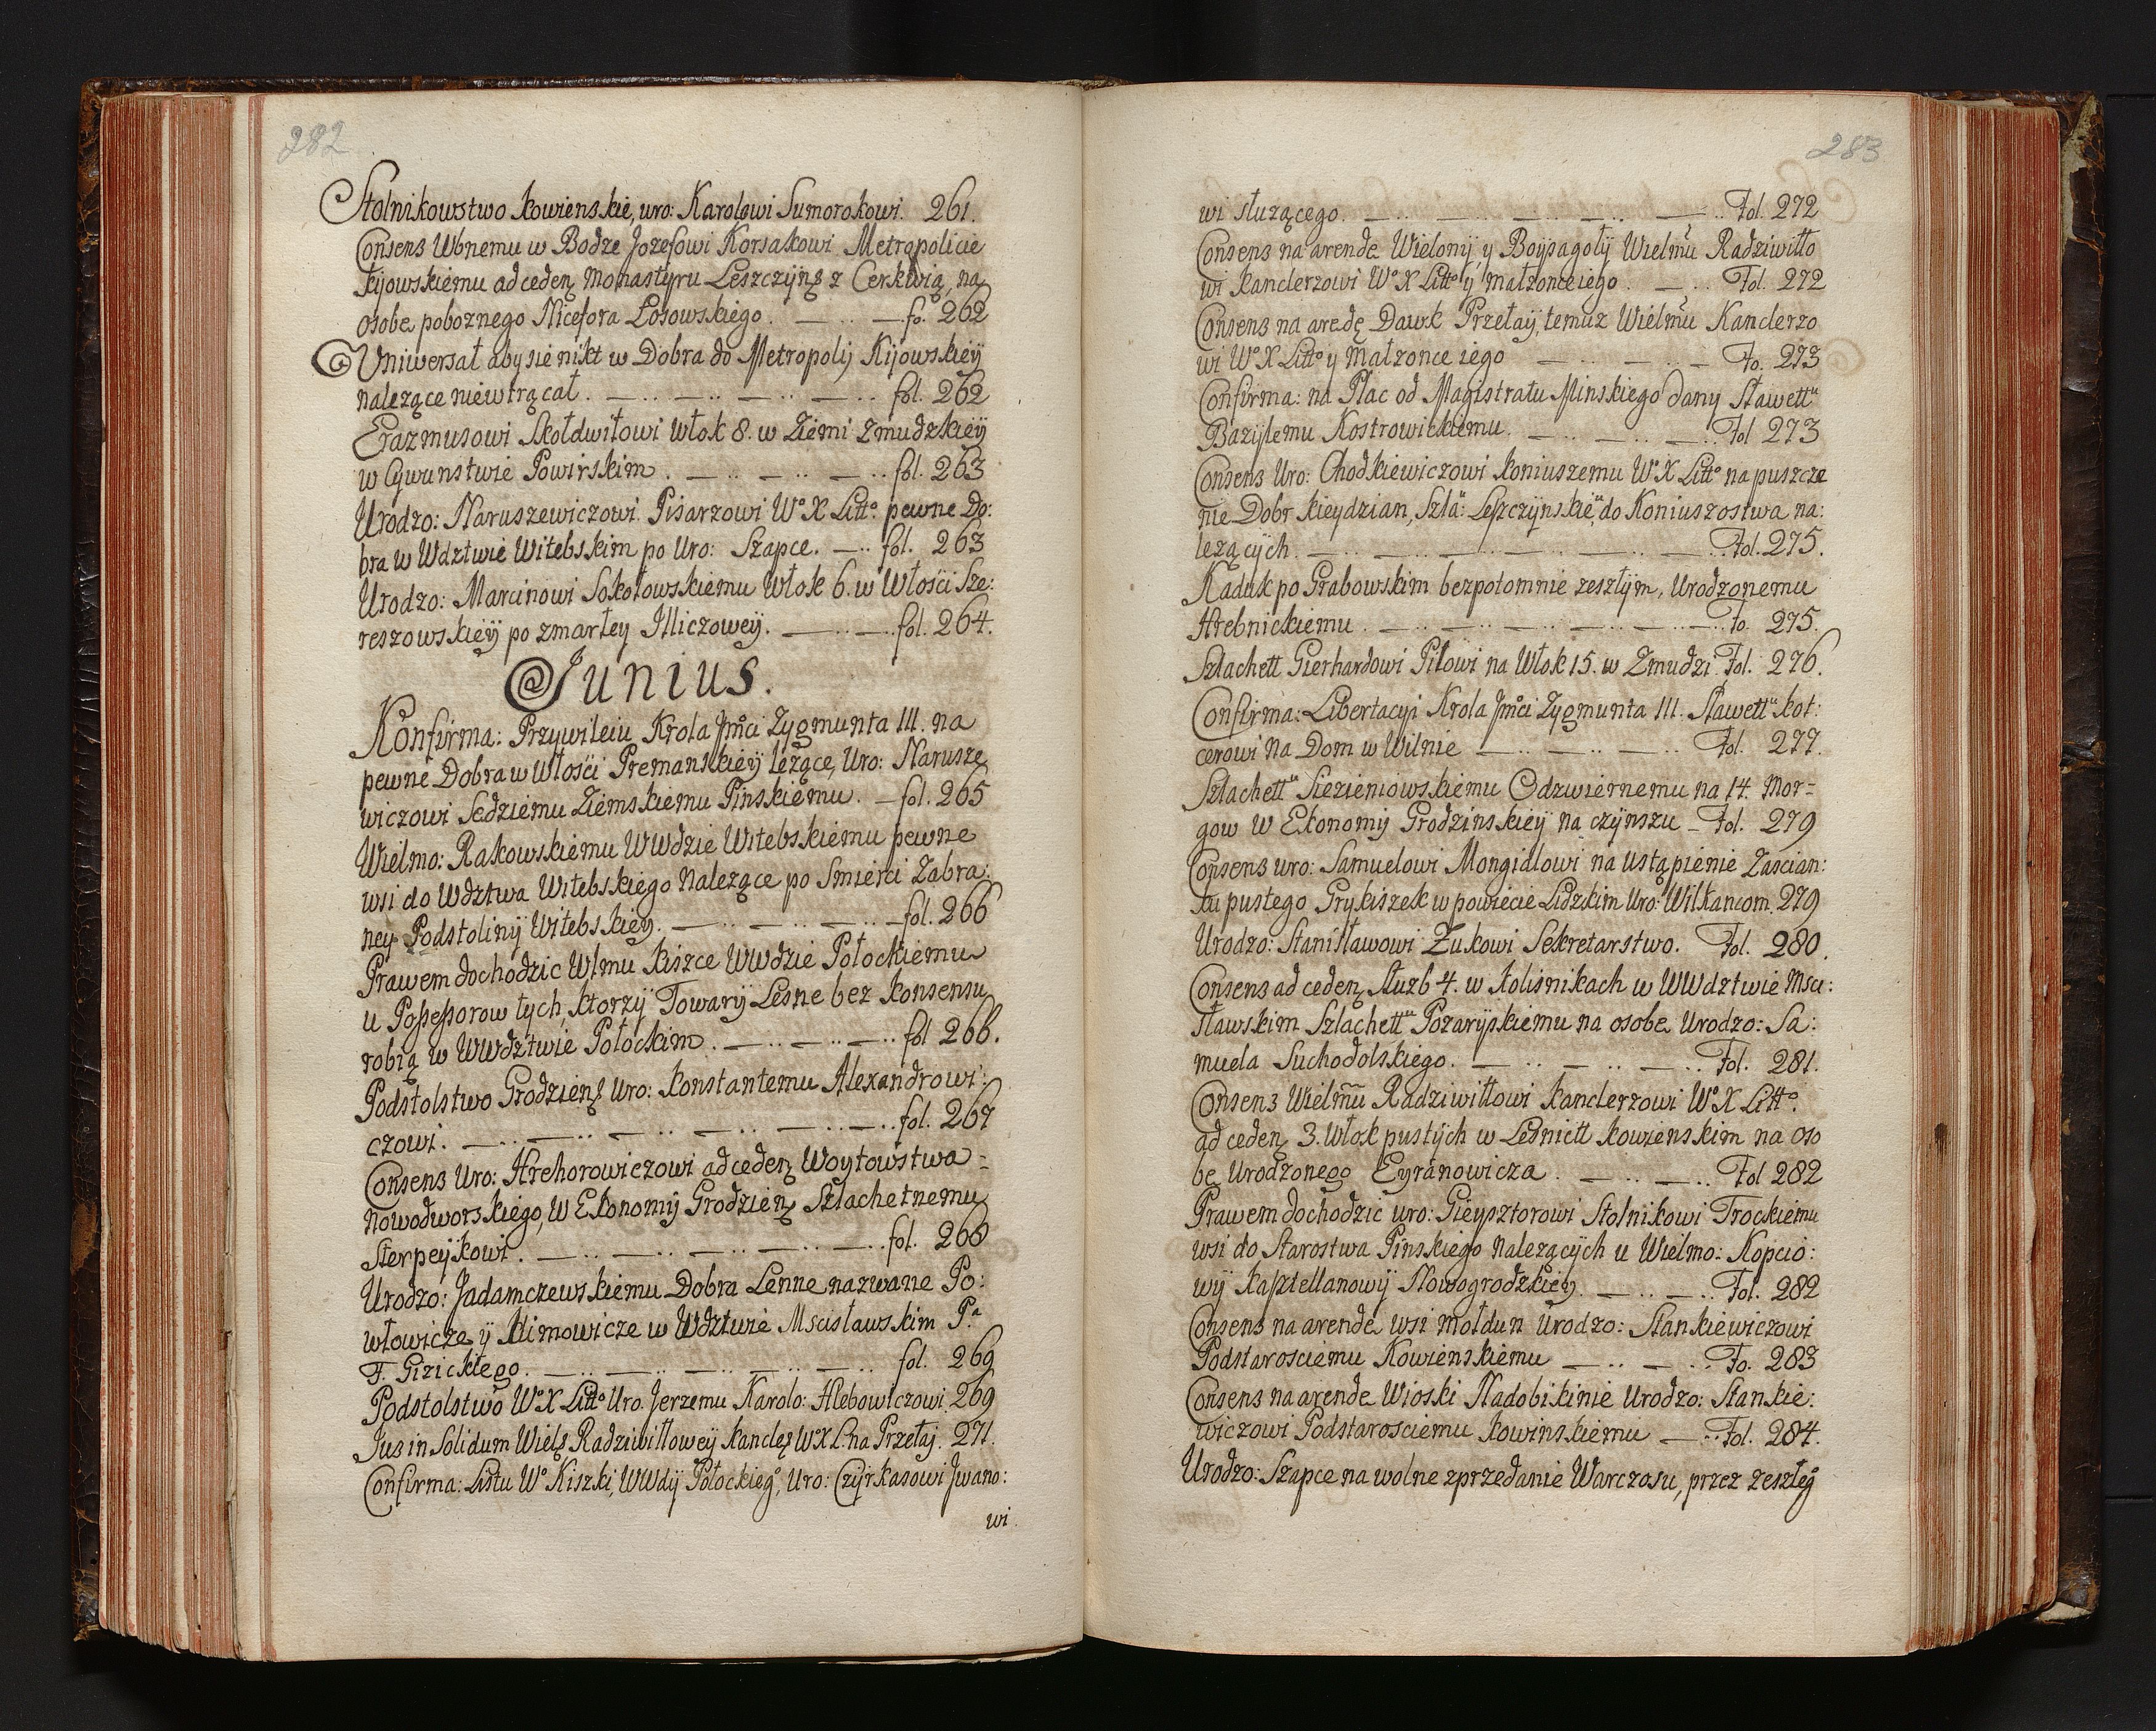 282
Stolnikowstwo kowienskie, uro: Karolowi Sumorokowi. 261.
Consens Wbnemu w Bodze Jozefowi Korsakowi Metropolicie
kijowskiemu ad ceden monastyru Leszczyńs z Cerkwią, na
osobę poboznego Nicefora Łosowskiego. — .. — fo. 262
Uniwersał aby się nikt w Dobra do Metropolij Kijowskieÿ
nalezące niewtrącał. — .. — .. — .. — .. fol. 262
Erazmusowi Skołdwiłowi Włok 8. w Ziemi Zmudzkieÿ
w Cywunstwie Powirskim. — .. — .. — .. fol. 263
Urodzo: Naruszewiczowi Pisarzowi Wº X Littº pewne Do:
bra w Wdztwie Witebskim po Uro: Szapce. — .. fol. 263
Urodzo: Marcinowi Sokołowskiemu Włok 6. w Włości Sze:
reszowskieÿ po zmarłey Illiczoweÿ. — .. — fol. 264.
Junius.
Konfirma: Przywileiu Krola Jmci Zygmunta III. na
pewne Dobra w Włości Premanskieÿ lezące, Uro: Narusze
wiczowi Sędziemu Ziemskiemu Pinskiemu. — fol. 265
Wielmo: Rakowskiemu WWdzie Witebskiemu pewne
wsi do Wdztwa Witebskiego Nalezące po Smierci Zabra:
ney Podstolinÿ Witebskieÿ. — .. — .. — .. — fol. 266
Prawem dochodzic Wlmu kiszce WWdzie Połockiemu
u Possessorow tych, ktorzÿ Towarÿ Lesne bez konsensu
robią w WWdztwie Połockim. — .. — .. — .. fol 266.
Podstolstwo Grodzieńs Uro: konstantemu Alexandrowi:
czowi. — .. — .. — .. — .. — .. — .. fol. 267
Consens Uro: Hrehorowiczowi ad ceden Woytowstwa -
Nowodworskiego, W Ekonomÿ Grodzieńs Szlachetnemu
Sterpeÿkowi. — .. — .. — .. — .. — .. fol. 268
Urodzo: Jadamczewskiemu Dobra Lenne nazwane Po:
włowicze ÿ klimowicze w Wdztwie Mscisławskim P.ª
F. Gizickiego. — .. — .. — .. — .. — .. fol. 269
Podstolstwo Wº X Littº Uro. Jerzemu Karolo: Hlebowiczowi. 269
Jus in Solidum Wiels Radziwiłłoweÿ kancle Wº X L. na Przełaj. 271.
Confirma: Listu Wº Kiszki, WWdÿ Połockiegº, Uro: Czÿrkasowi Jwano:
wi.
283
wi służącego. — .. — .. — .. — .. — .. Fol. 272
Consens na arendę Wielonÿ, y Boÿsagołÿ Wielmu Radziwiłło
wi kanclerzowi Wº X Littº ÿ małzonce iego. — .. Fol. 272
Consens na aredę Dawk Przełaÿ, temuz Wielmu Kanclerzo
wi Wº X Littº y małzonce iego — .. — .. — Fo. 273
Confirma: na Plac od Magistratu Minskiego dany Sławettu
Bazÿlemu Kostrowickiemu. — .. — .. — .. Fol 273
Consens Uro: Chodkiewiczowi koniuszemu Wº X Littº na puszcze
nie Dobr kieydzian, Szla: Leszczÿnskie, do Koniuszostwa na:
lezącÿch. — .. — .. — .. — .. — .. Fol. 275.
Kaduk po Grabowskim bezpotomnie zeszłÿm, Urodzonemu
Hrebnickiemu. — .. — .. — .. — .. — .. Fo. 275.
Szlachett Gierhardowi Piłowi na Włok 15. w Zmudzi. Fol. 276.
Confirma: Libertacÿi Krola Jmci Zygmunta III. Sławettu kot:
cerowi na Dom w Wilnie — .. — .. — .. Fol. 277.
Szlachettu Siezieniowskiemu Odzwiernemu na 14. Mor=
gow W Ekonomÿ Grodzinskieÿ na czÿnszu — Fol. 279
Consens uro: Samuelowi Mongidlowi na Ustąpienie Zascian:
ku pustego Grykiszek w powiecie Lidzkim Uro: Wilkancom. 279
Urodzo: Stanisławowi Zukowi Sekretarstwo. Fol. 280.
Consens ad ceden Służb 4. w kolisnikach w WWdztwie Msci:
sławskim Szlachettu Pozarÿskiemu na osobę Urodzo: Sa:
muela Suchodolskiego. — .. — .. — .. Fol. 281.
Consens Wielmu Radziwiłłowi kanclerzowi Wº X Littº.
ad ceden 3. Włok pustych w Lesnictt kowienskim na oso
bę Urodzonego Eyranowicza. — .. — .. Fol 282
Prawem dochodzic uro: Gieysztorowi Stolnikowi Trockiemu
wsi do Starostwa Pinskiego Nalezącÿch u Wielmo: Kopcio:
wÿ kasztellanowÿ Nowogrodzkieÿ. — .. — .. Fol. 282
Consens na arendę wsi mołdun Urodzo: Stankiewiczowi
Podstarosciemu Kowienskiemu — .. — .. Fo. 283
Consens na arendę Wioski Nadobikinie Urodzo: Stankie:
wiczowi Podstarosciemu kowinskiemu — .. Fol. 284.
Urodzo: Szapce na wolne zprzedanie Warczasu, przez zeszłegº